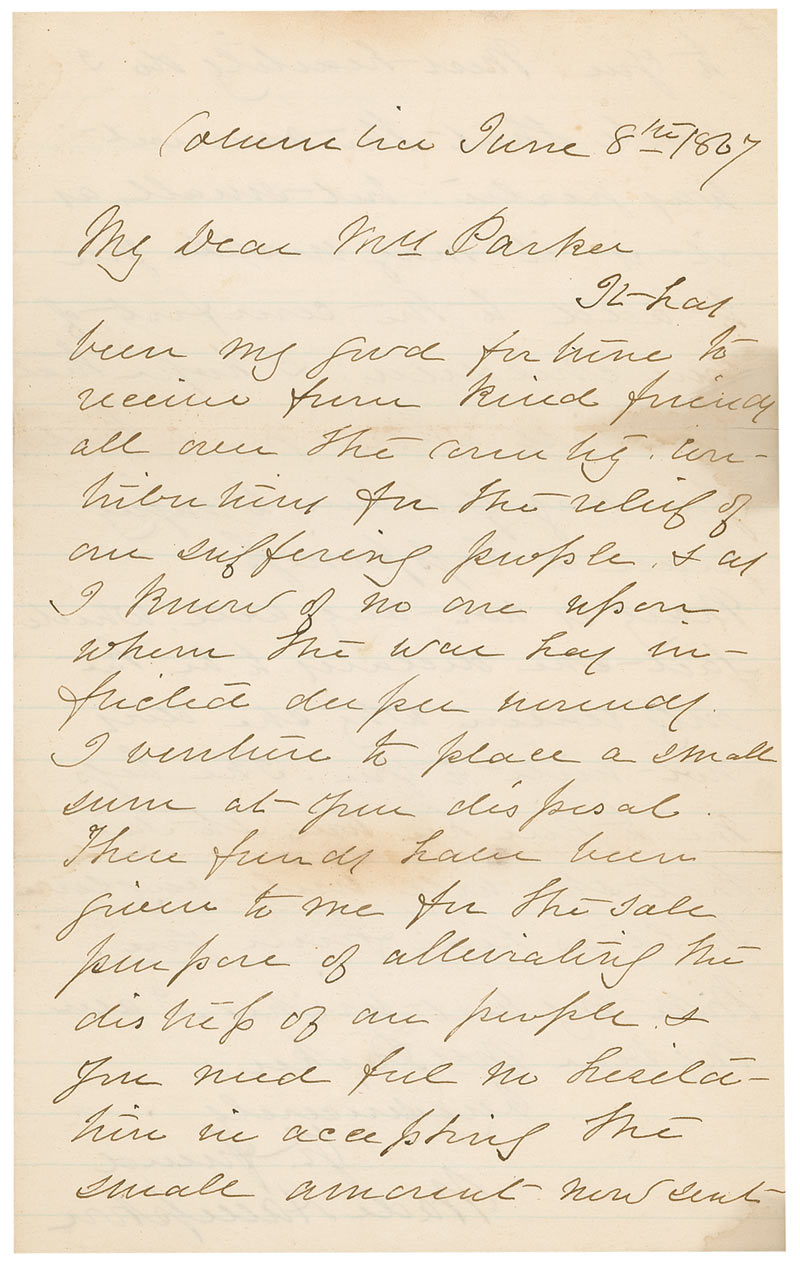 Columbia June 8th 1867
My Dear Mrs Parker
It has
been my good fortune to
receive from kind friends
all over the country. con-
tributions for the relief of
our suffering people, & as
I know of no one upon
whom the war has in-
flicted deeper wounds.
I venture to place a small
sum at your disposal.
These funds have been
given to me for the sole
purpose of alleviating the
distress of our people &
you need feel no hesita-
tion in accepting the
small amount now sent